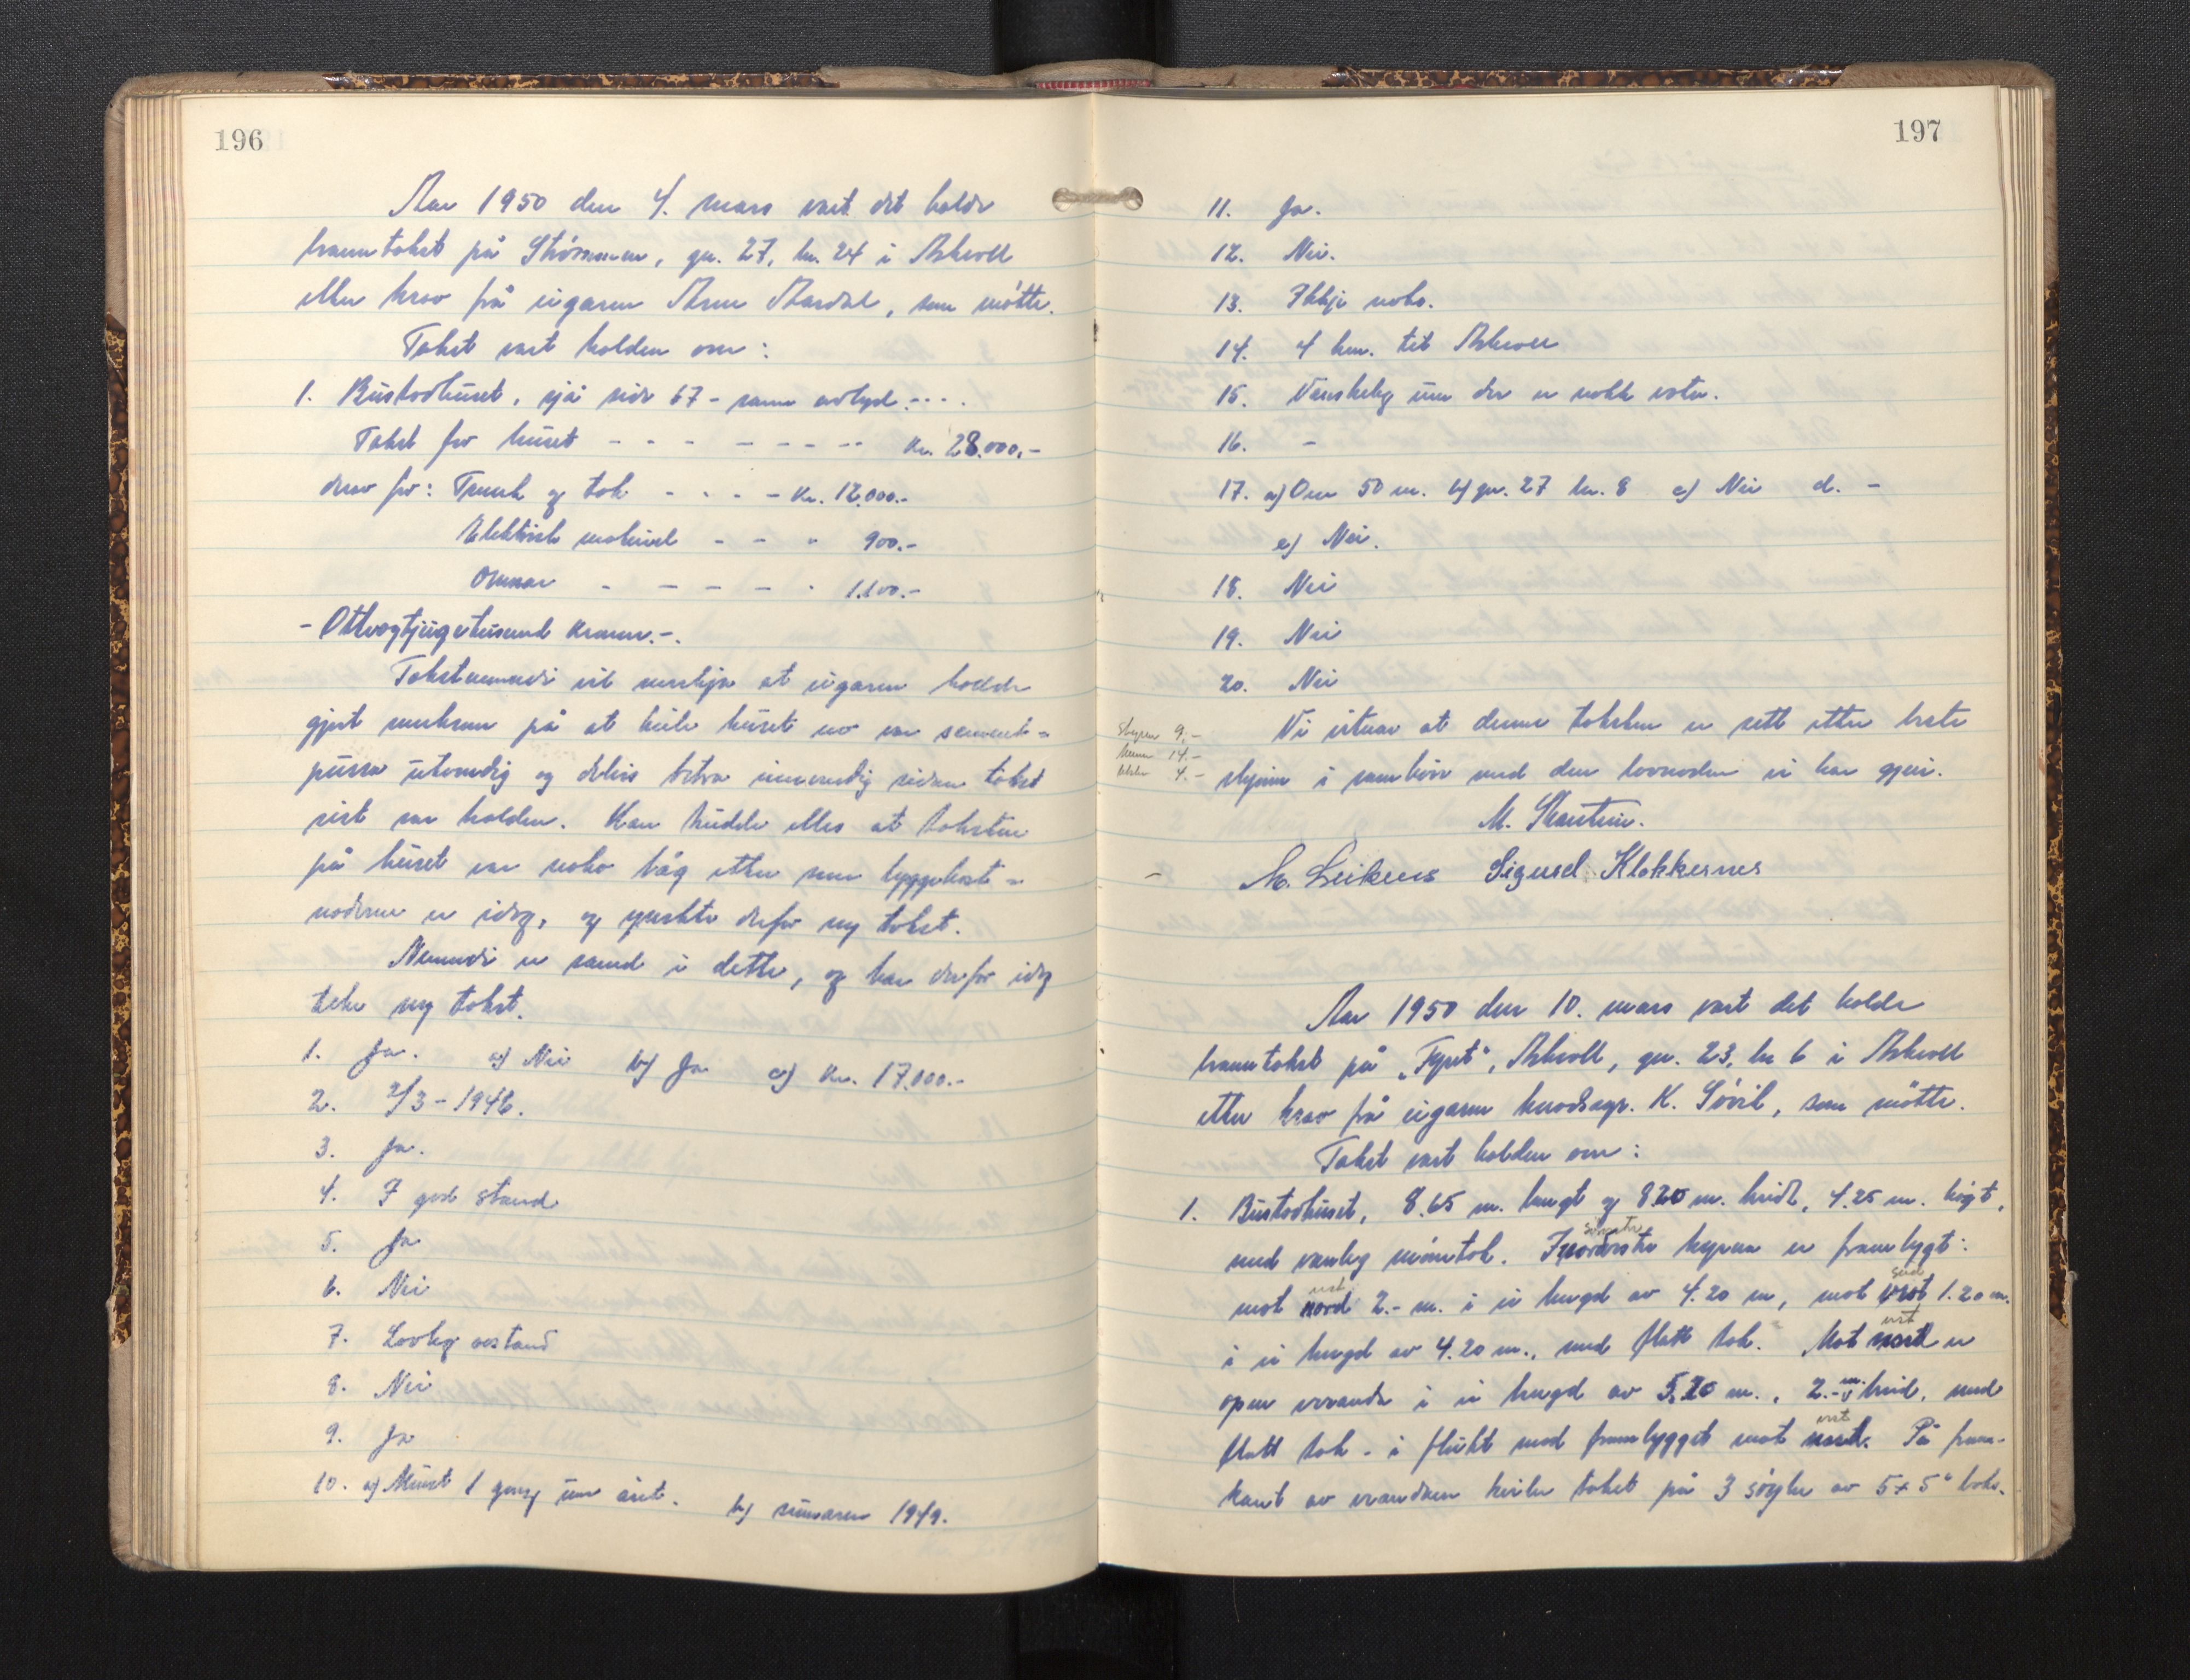 196
Aar 1950 den 4. mars vart det halde
branntakst på Strømmen, gn. 27, bn. 24 i Askvoll
etter krav frå eigaren Arne Aardal, som møtte.
Takst vart halden over:
1. Bustadhuset, sjå side 67 - same ordlyd. - - -
Takst for huset - - - - - - - - kr. 28.000.-
derav for: Trevk og tak - - - - kr. 12.000.-
Elektrisk materiell - - " 900.-
Omnar - - - - - " 1.100.-
- Ottogtjugetusund kroner. -.
Takstnemndi vil merkja at eigaren hadde
gjort merksam på at heile huset no var sement-
pussa utvendig og delvis betra innvendig sidan takst
sist var halden. Han trudde elles at taksten
på huset var noko låg etter som byggekost-
nadene er idag, og ynskte derfor ny takst.
Nemndi er samd i dette, og har derfor idag
teke ny takst.
1. Ja. a) Nei b) Ja c) kr. 17.000.-
2. 2/3 - 1946.
3. Ja.
4. I god stand
5. Ja
6. Nei
7. Lovleg avstand
8. Nei
9. Ja
10. a) Minst 1 gong um året. b) sumaren 1949.
197
11. Ja.
12. Nei.
13. Ikkje noko.
14. 4 km. til Askvoll
15. Vanskeleg um der er nokk vatn.
16. -
17. a) Over 50 m. b) gn. 27 bn. 8 c) Nei d. -
e) Nei.
18. Nei
19. Nei
20. Nei
Skyss 9.-
14.-
4.-
Vi vitnar at denne taksten er sett etter beste
skjøn i samhøve med den lovnaden vi har gjeve.
M. Skarstein.
M. Leiknes Sigurd Klokkernes
Aar 1950 den 10. mars vart det halde
branntakst på „Fyret", Askvoll, gn. 23, bn 6 i Askvoll
etter krav frå eigaren heradsagr. K. Søvik, som møtte.
Takst vart halden over:
1. Bustadhuset, 8.65 m. langt og 8.20 m. breidt, 4.25 m. høgt,
søraustre
med vanleg mønetak. I nordvestre hyrna er frambygt:
vest
sud
mot nord 2.- m. i ei lengd av 4.20 m, mot vest 1.20 m.
vest
i ei lengd av 4.20 m., med flatt tak. Mot nord er
open veranda i ei lengd av 5.20 m., 2.- m. breid, med
vest
flatt tak - i flukt med frambygget mot nord. På fram-
kant av verandaen kviler taket på 3 søyler av 5 x 5" boks.